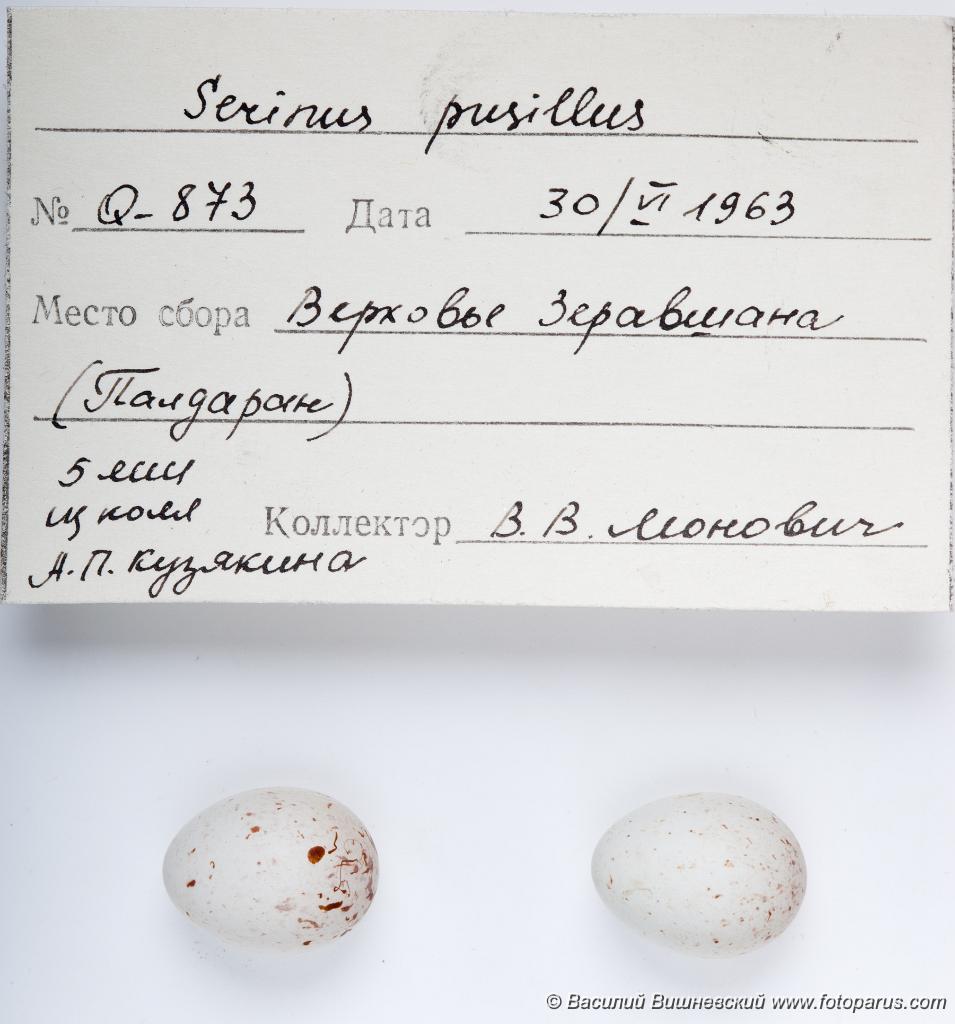 Serinus pusillus
№ Q-873 Дата 30/VI 1963
Место сбора Верховье Зеравшана
(Палдаран)
5 яиц
из колл
Коллектор В. В. Леонович
А.П. Кузякина
© Василий Вишневский www.fotoparus.com